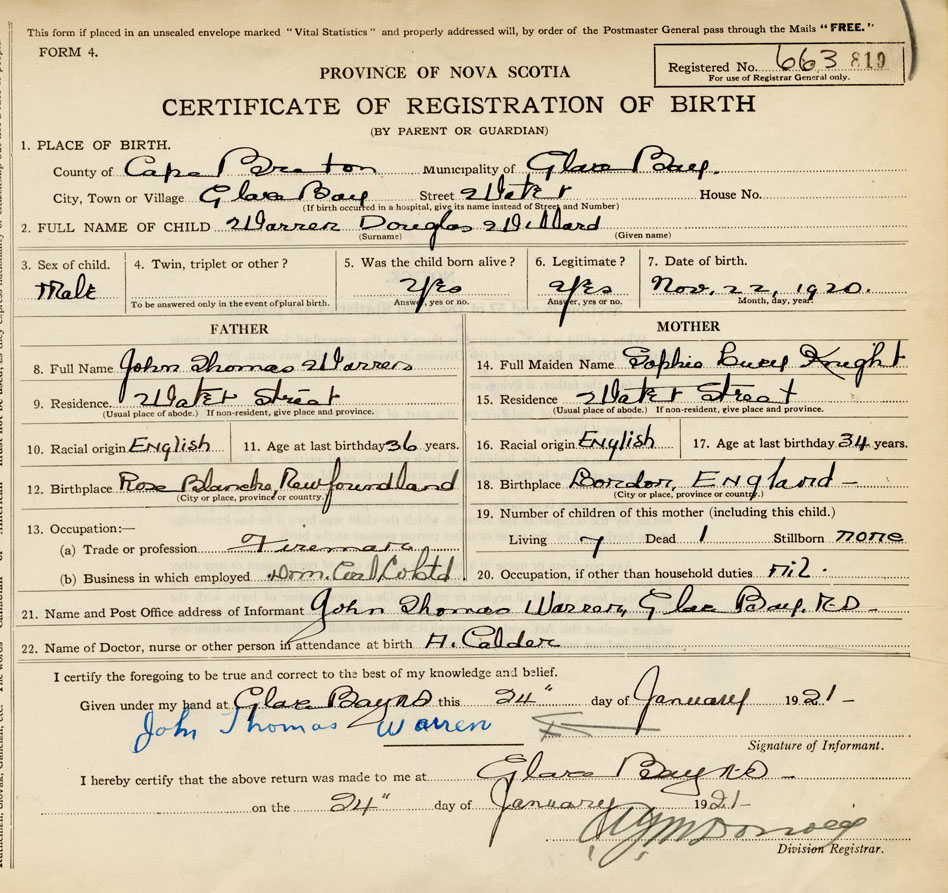 This form if placed in an unsealed envelope marked "Vital Statistics" and properly addressed will, by order of the Postmaster General pass through the Mails "FREE."
FORM 4.
Registered No. 663 819
For use of Registrar General only.
PROVINCE OF NOVA SCOTIA
CERTIFICATE OF REGISTRATION OF BIRTH
(BY PARENT OR GUARDIAN)
1. PLACE OF BIRTH.
County of Cape Breton Municipality of Glace Bay.
City, Town or Village Glace Bay Street Water House No.
(If birth occurred in a hospital, give its name instead of Street and Number)
2. FULL NAME OF CHILD Warren Douglas Willard
(Surname) (Given name)
3. Sex of child. 4. Twin, triplet or other? 5. Was the child born alive? 6. Legitimate? 7. Date of birth.
Male Yes Yes Nov. 22, 1920.
To be answered only in the event of plural birth. Answer, yes or no. Answer, yes or no. Month, day, year.
FATHER MOTHER
8. Full Name John Thomas Warren 14. Full Maiden Name Sophie Lucy Knight
9. Residence. Water Street 15. Residence Water Street
(Usual place of abode.) If non-resident, give place and province. (Usual place of abode.) If non-resident, give place and province.
10. Racial origin English 11. Age at last birthday 36 years. 16. Racial origin English 17. Age at last birthday 34 years.
12. Birthplace Rose Blanche, Newfoundland 18. Birthplace London, England -
(City or place, province or country.) (City or place, province or country.)
13. Occupation:— 19. Number of children of this mother (including this child.)
(a) Trade or profession Fireman Living 7 Dead 1 Stillborn none
(b) Business in which employed Dom. Coal Co Ltd 20. Occupation, if other than household duties nil.
21. Name and Post Office address of Informant John Thomas Warren, Glace Bay, N.S -
22. Name of Doctor, nurse or other person in attendance at birth A. Calder
I certify the foregoing to be true and correct to the best of my knowledge and belief.
Given under my hand at Glace Bay NS this 24" day of January 1921-
John Thomas Warren
Signature of Informant.
I hereby certify that the above return was made to me at Glace Bay NS -
on the 24" day of January 1921-
Division Registrar.